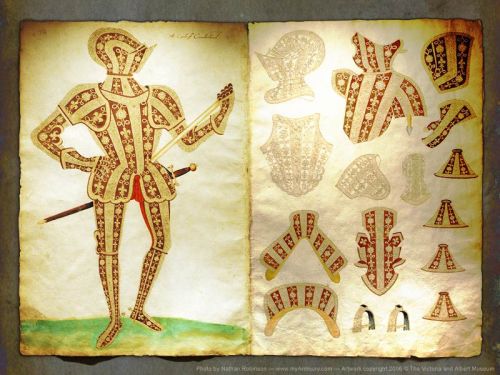 Photo by Nathan Robinson — www.myArmoury.com — Artwork copyright 2006 © The Victoria and Albert Museum